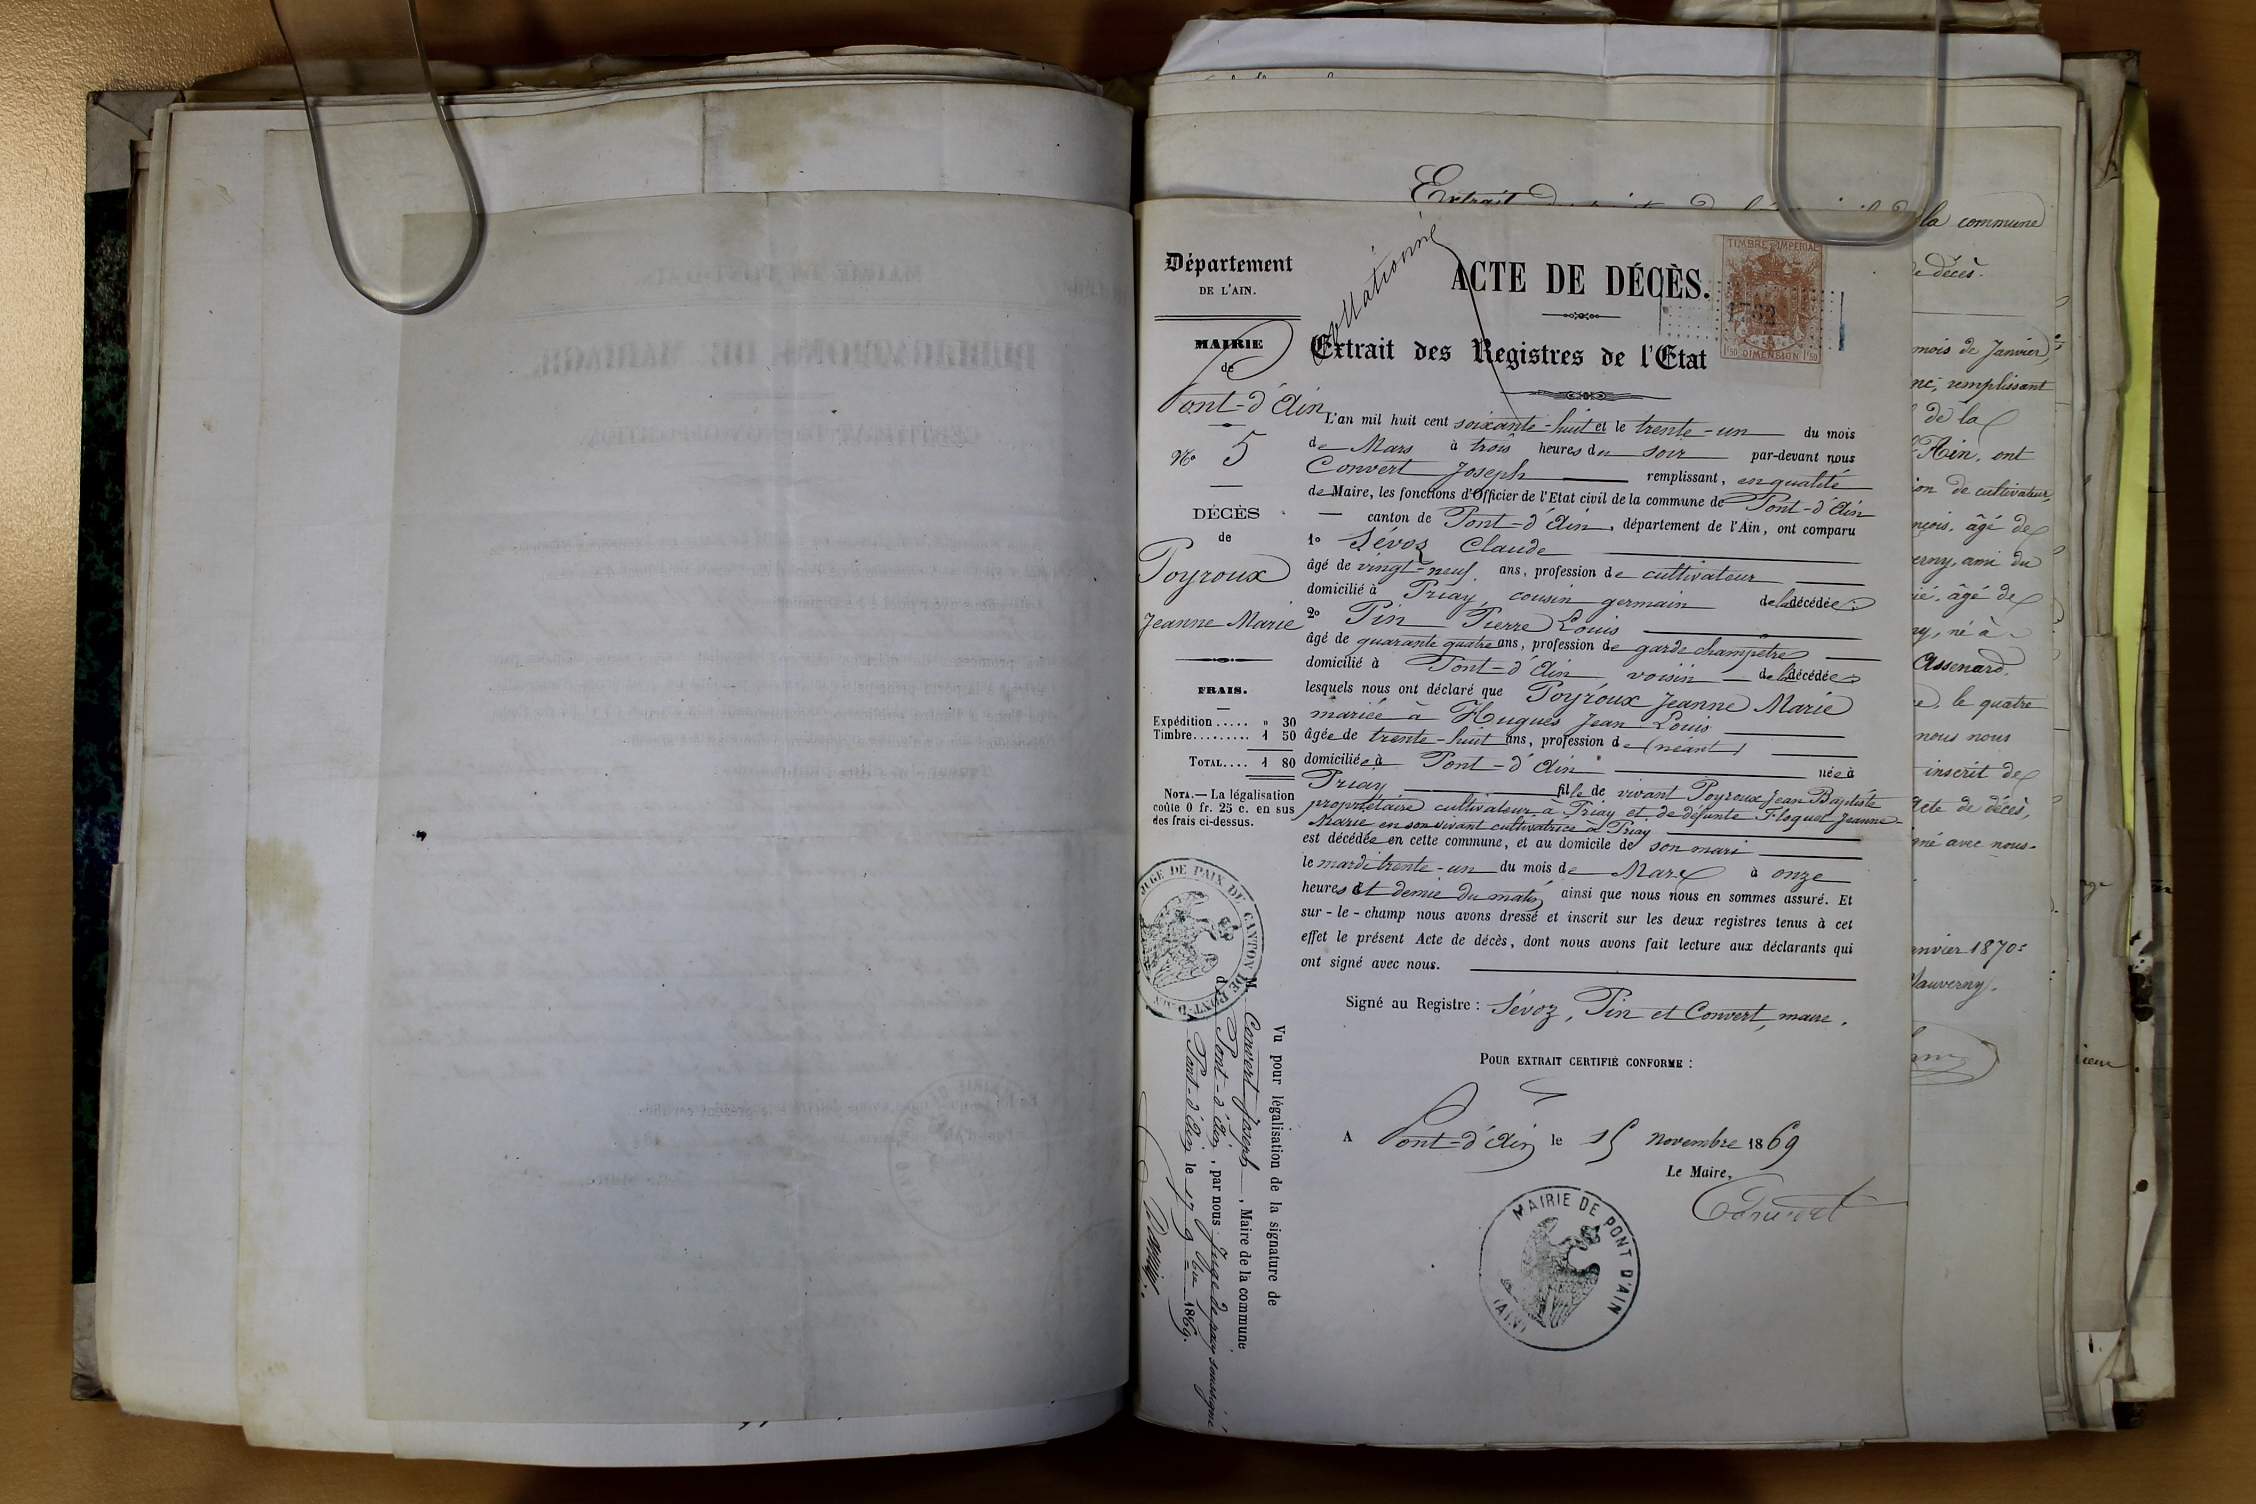 Extrait
la commune
de décès.
Département
DE L'AIN.
MAIRIE
de
Pont-d'Ain
N° 5
DÉCÈS
de
Poyroux
Jeanne Marie
FRAIS.
Expédition ..... " 30
Timbre......... 1 50
TOTAL.... 1 80
NOTA.— La légalisation
coûte 0 fr. 25 c. en sus
des frais ci-dessus.
JUGE DE PAIX DE CANTON DE PONT-D'AIN
Collationné
ACTE DE DÉCÈS.
TIMBRE IMPERIAL
1f50 DIMENSION 1f50
Extrait des Registres de l'Etat
L'an mil huit cent soixante-huit et le trente-un du mois
de Mars à trois heures du soir par-devant nous
Convert Joseph remplissant, en qualité
de Maire, les fonctions d'Officier de l'Etat civil de la commune de Pont-d'Ain
canton de Pont-d'Ain, département de l'Ain, ont comparu
1° Sévoz Claude
âgé de vingt-neuf ans, profession de cultivateur
domicilié à Priay, cousin germain de la décédée;
2° Pin Pierre Louis
âgé de quarante quatre ans, profession de garde champêtre
domicilié à Pont-d'Ain voisin de la décédée
lesquels nous ont déclaré que Poyroux Jeanne Marie
mariée à Hugues Jean Louis
âgée de trente-huit ans, profession de (néant)
domiciliée à Pont-d'Ain née à
Priay fille de vivant Poyroux Jean Baptiste
propriétaire cultivateur à Priay et de défunte Floquet Jeanne
Marie en son vivant cultivatrice à Priay
est décédée en cette commune, et au domicile de son mari
le mardi trente-un du mois de Mars à onze
heures et demie du matin ainsi que nous nous en sommes assuré. Et
sur-le-champ nous avons dressé et inscrit sur les deux registres tenus à cet
effet le présent Acte de décès, dont nous avons fait lecture aux déclarants qui
ont signé avec nous.
Signé au Registre : Sévoz, Pin et Convert, maire.
POUR EXTRAIT CERTIFIÉ CONFORME :
A Pont-d'Ain le 15 novembre 1869
Le Maire,
Convert
MAIRIE DE PONT D'AIN
(AIN)
Vu pour légalisation de la signature de
M Convert Joseph, Maire de la commune
d Pont-d'Ain, par nous Juge de paix soussigné
Pont-d'Ain le 17 9bre 1869.
mois de Janvier,
remplissant
de la
l'Ain, ont
de cultivateur,
âgé de
ami du
âgé de
né à
Assenard
le quatre
nous nous
inscrit de
Acte de décès,
avec nous.
Janvier 1870
Vauverny.